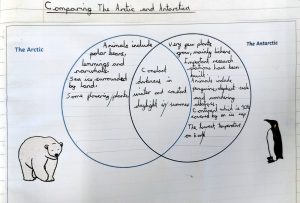 Comparing The Arctic and Antarctica
The Arctic
Animals include
polar bears,
lemmings and
narwhals.
Sea ice surrounded
by land.
Some flowering plants
Constant
darkness in
winter and constant
daylight in summer
The Antarctic
Very few plants
grow, mainly lichens
Important research
stations have been
built.
Animals include
penguins, elephant seals
and wandering
albatross
Continent which is 98%
covered by an ice cap
The lowest temperature
on Earth